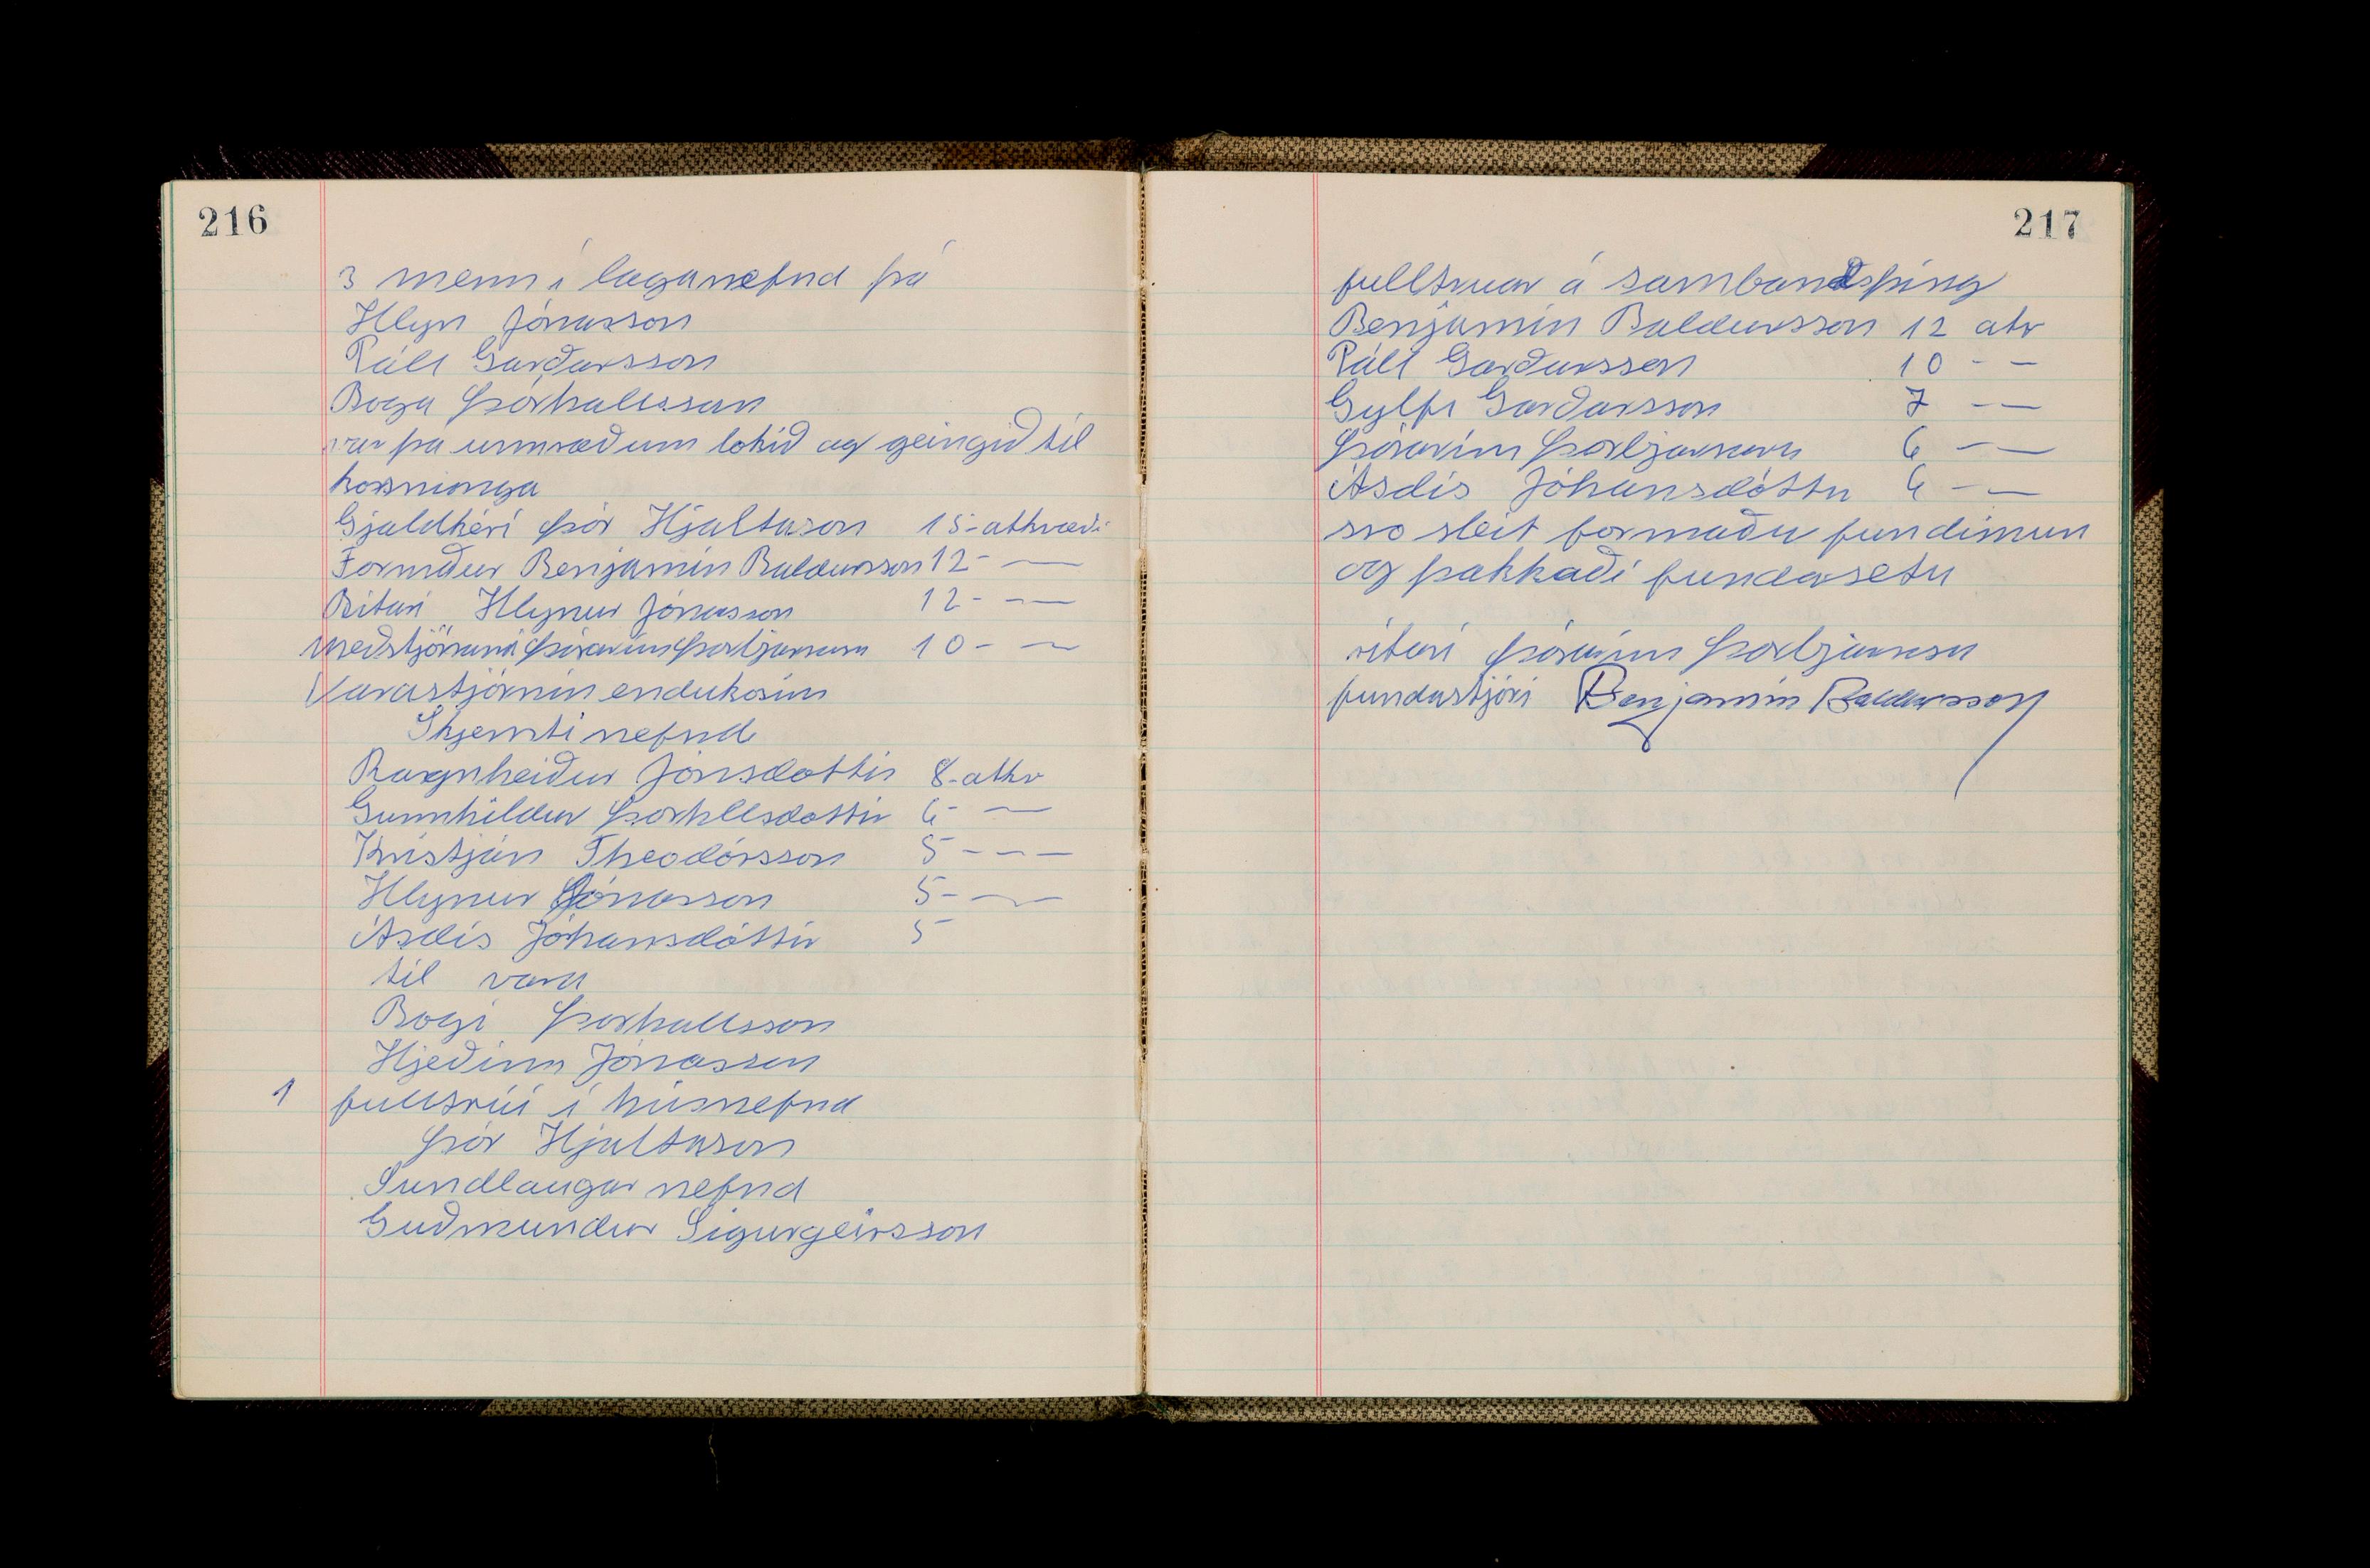 216
3 menn í laganefnd þá
Hlyn Jónasson
Páll Garðarsson
Boga Þórhallsson
var þa umrædum lokið og geingið til
kosninga
Gjaldkéri Þór Hjaltason 15-athvædi
Formður Benjamín Baldursson 12- —
Ritari Hlynur Jónasson 12- —
Meðstjórnandi Þórarinn Þorbjarnarson 10- —
Varastjórnin endukosin
Skjemtinefnd
Ragnheiður Jónsdottir 8-athv
Gunnhildur Þorhllsdottir 6- —
Kristján Theodórsson 5 - — —
Hlynur Jónasson 5- — —
Ásdís Jóhansdóttir 5
til vara
Bogi Þorhallsson
Hjeðinn Jónasson
1 fulltrúi í húsnefnd
Þór Hjaltason
Sundlaugar nefnd
Guðmundur Sigurgeirsson
217
fulltruar á sambandsþing
Benjamín Baldursson 12 atv
Páll Garðarsson 10 - —
Gylfi Garðarsson 7 - —
Þórarinn Þorbjarnarn 6 - —
Ásdís Jóhansdóttu 6 - —
svo sleit formaðu fundinum
og þakkaði fundasetu
ritari Þórarinn Þorbjarnson
fundastjóri Benjamín Baldursson